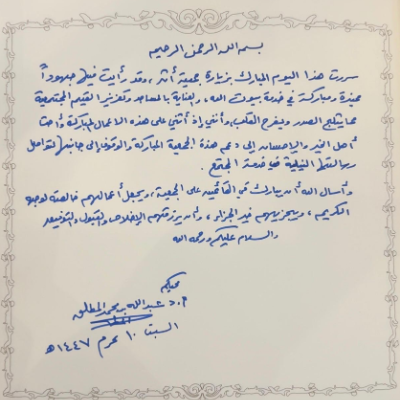 بسم الله الرحمن الرحيم
سررت هذا اليوم المبارك بزيارة جمعية أثر، وقد رأيت فيها جهوداً
مميزة ومباركة في خدمة بيوت الله، والعناية بالمساجد وتعزيز القيم المجتمعية
مما يثلج الصدر ويفرح القلب، وإنني إذ أثني على هذه الأعمال المباركة وأحث
أهل الخير والإحسان إلى دعم هذه الجمعية المباركة والوقوف إلى جانبها لتواصل
رسالتها النبيلة في خدمة المجتمع.
وأسأل الله أن يبارك في القائمين على الجمعية، ويجعل أعمالهم خالصة لوجهه
الكريم، ويجزيهم خير الجزاء، وأن يرزقهم الإخلاص والقبول والتوفيق
والسلام عليكم ورحمة الله
محبكم
د. عبدالله بن محمد المطلق
السبت ١٠ محرم ١٤٤٧هـ